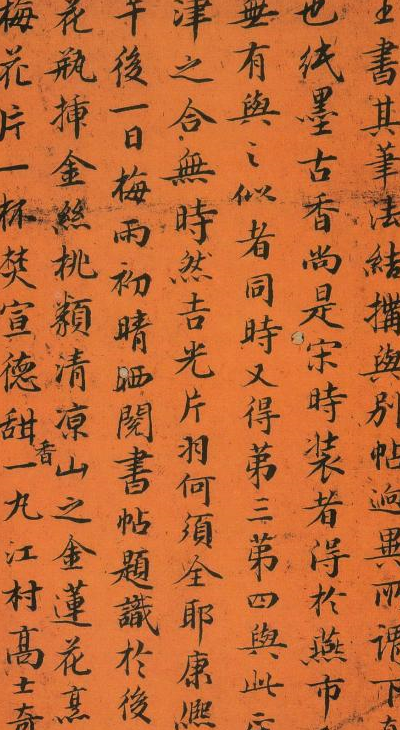 書其筆法結搆與别帖迥異所謂下
也紙墨古香尚是宋時装者得於燕市
無有與之似者同時又得第三第四與此
津之合無時然吉光片羽何須全耶康熙
午後一日梅雨初晴晒閱書帖題識於後
花瓶揷金絲桃類清凉山之金蓮花烹
梅花片一杯焚宣德甜香一丸江村高士奇